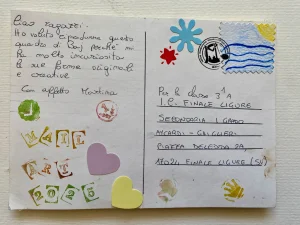 Ciao ragazzi.
Ho voluto riprodurre questo
quadro di perché mi
ha molto incuriosita
le sue forme originali
e creative
Con affetto Martina
MAIL
ART
2025
Per la classe 3ªA
I.C. FINALE LIGURE
SECONDARIA I GRADO
PIAZZA DELEDDA 2A,
17024 FINALE LIGURE (SV)